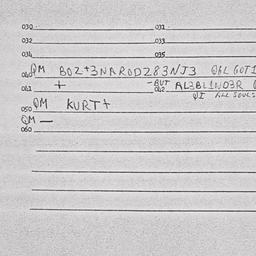 030 031
032 033
034 035
040 QM BOZ+3NAROD283NJ3 GOT1
061 + -BUT 062 AL3BL1NO3R
QI ALL SOULS
050 QM KURT+
QM —
060